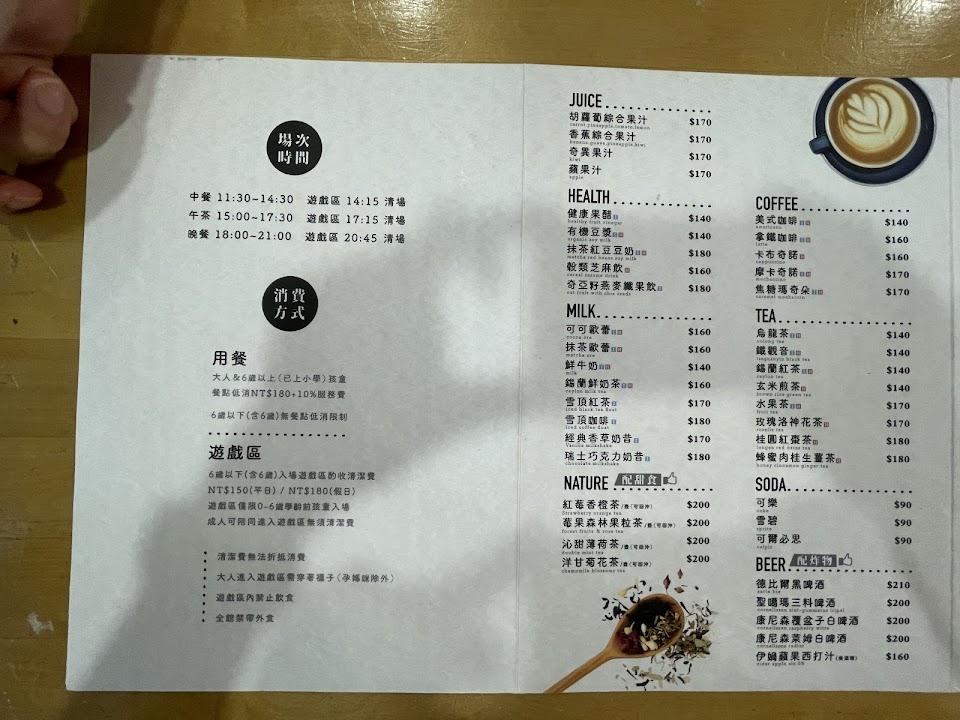 場次
時間
中餐 11:30~14:30 遊戲區 14:15 清場
午茶 15:00~17:30 遊戲區 17:15 清場
晚餐 18:00~21:00 遊戲區 20:45 清場
消費
方式
用餐
大人&6歲以上(已上小學)孩童
餐點低消NT$180+10%服務費
6歲以下(含6歲)無餐點低消限制
遊戲區
6歲以下(含6歲)入場遊戲區酌收清潔費
NT$150(平日) / NT$180(假日)
遊戲區僅限0-6歲學齡前孩童入場
成人可陪同進入遊戲區無須清潔費
清潔費無法折抵消費
大人進入遊戲區需穿著襪子(孕媽咪除外)
遊戲區內禁止飲食
全館禁帶外食
JUICE
胡蘿蔔綜合果汁 $170
carrot,pineapple,tomato,lemon
香蕉綜合果汁 $170
banana,guava,pineapple,kiwi
奇異果汁 $170
kiwi
蘋果汁 $170
apple
HEALTH
健康果醋 $140
healthy fruit vinegar
有機豆漿 $140
organic soy milk
抹茶紅豆豆奶 $180
matcha red beans soy milk
穀類芝麻飲 $160
cereal sesame drink
奇亞籽燕麥纖果飲 $180
oat fruit with chia seeds
MILK
可可歐蕾 $160
cocoa ore
抹茶歐蕾 $160
matcha ore
鮮牛奶 $140
milk
錫蘭鮮奶茶 $160
ceylon milk tea
雪頂紅茶 $170
iced black tea float
雪頂咖啡 $180
iced coffee float
經典香草奶昔 $170
Vanilla milkshake
瑞士巧克力奶昔 $180
chocolate milkshake
NATURE 配甜食
紅莓香橙茶/壺(可回沖) $200
Strawberry orange tea
莓果森林果粒茶/壺(可回沖) $200
forest fruits & rose tea
沁甜薄荷茶/壺(可回沖) $200
double mint tea
洋甘菊花茶/壺(可回沖) $200
chamomile blossoms tea
COFFEE
美式咖啡 $140
americano
拿鐵咖啡 $160
latte
卡布奇諾 $160
cappuccino
摩卡奇諾 $170
mochaccino
焦糖瑪奇朵 $170
caramel mochaccin
TEA
烏龍茶 $140
oolong tea
鐵觀音 $140
tieguanyin black tea
錫蘭紅茶 $140
ceylon tea
玄米煎茶 $140
brown rice green tea
水果茶 $170
fruit tea
玫瑰洛神花茶 $170
roselle tea
桂圓紅棗茶 $180
longan red dates tea
蜂蜜肉桂生薑茶 $180
honey cinnamon ginger tea
SODA
可樂 $90
coke
雪碧 $90
sprite
可爾必思 $90
calpis
BEER 配炸物
德比爾黑啤酒 $210
聖噶瑪三料啤酒 $200
康尼森覆盆子白啤酒 $200
康尼森萊姆白啤酒 $200
伊蝸蘋果西打汁 $160